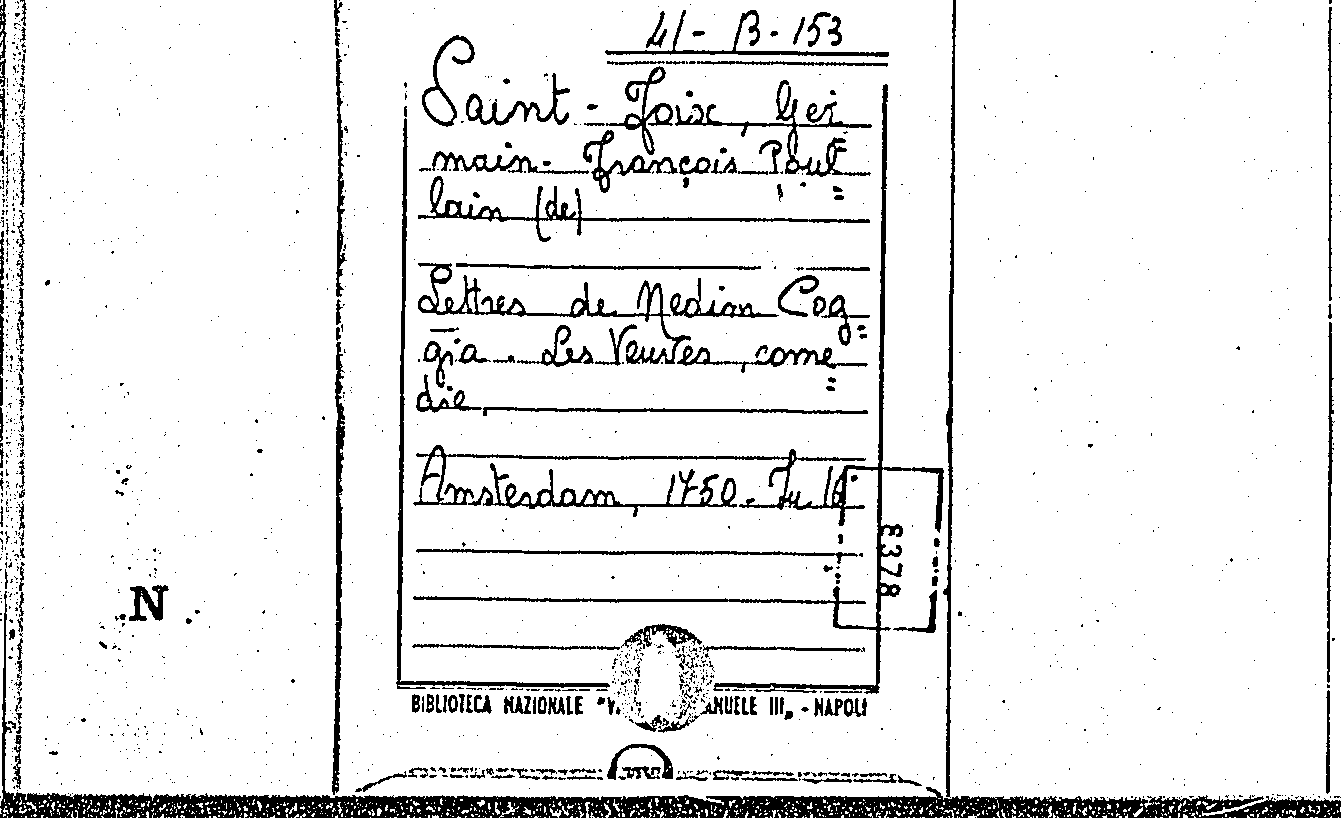 41-B-153
Saint-Foix, Ger
main-François Poul=
lain (de)
Lettres de Nedim Cog=
gia. Les Veuves, come=
die,
Amsterdam, 1750. In 16°
£378
N
BIBLIOTECA NAZIONALE - NAPOLI